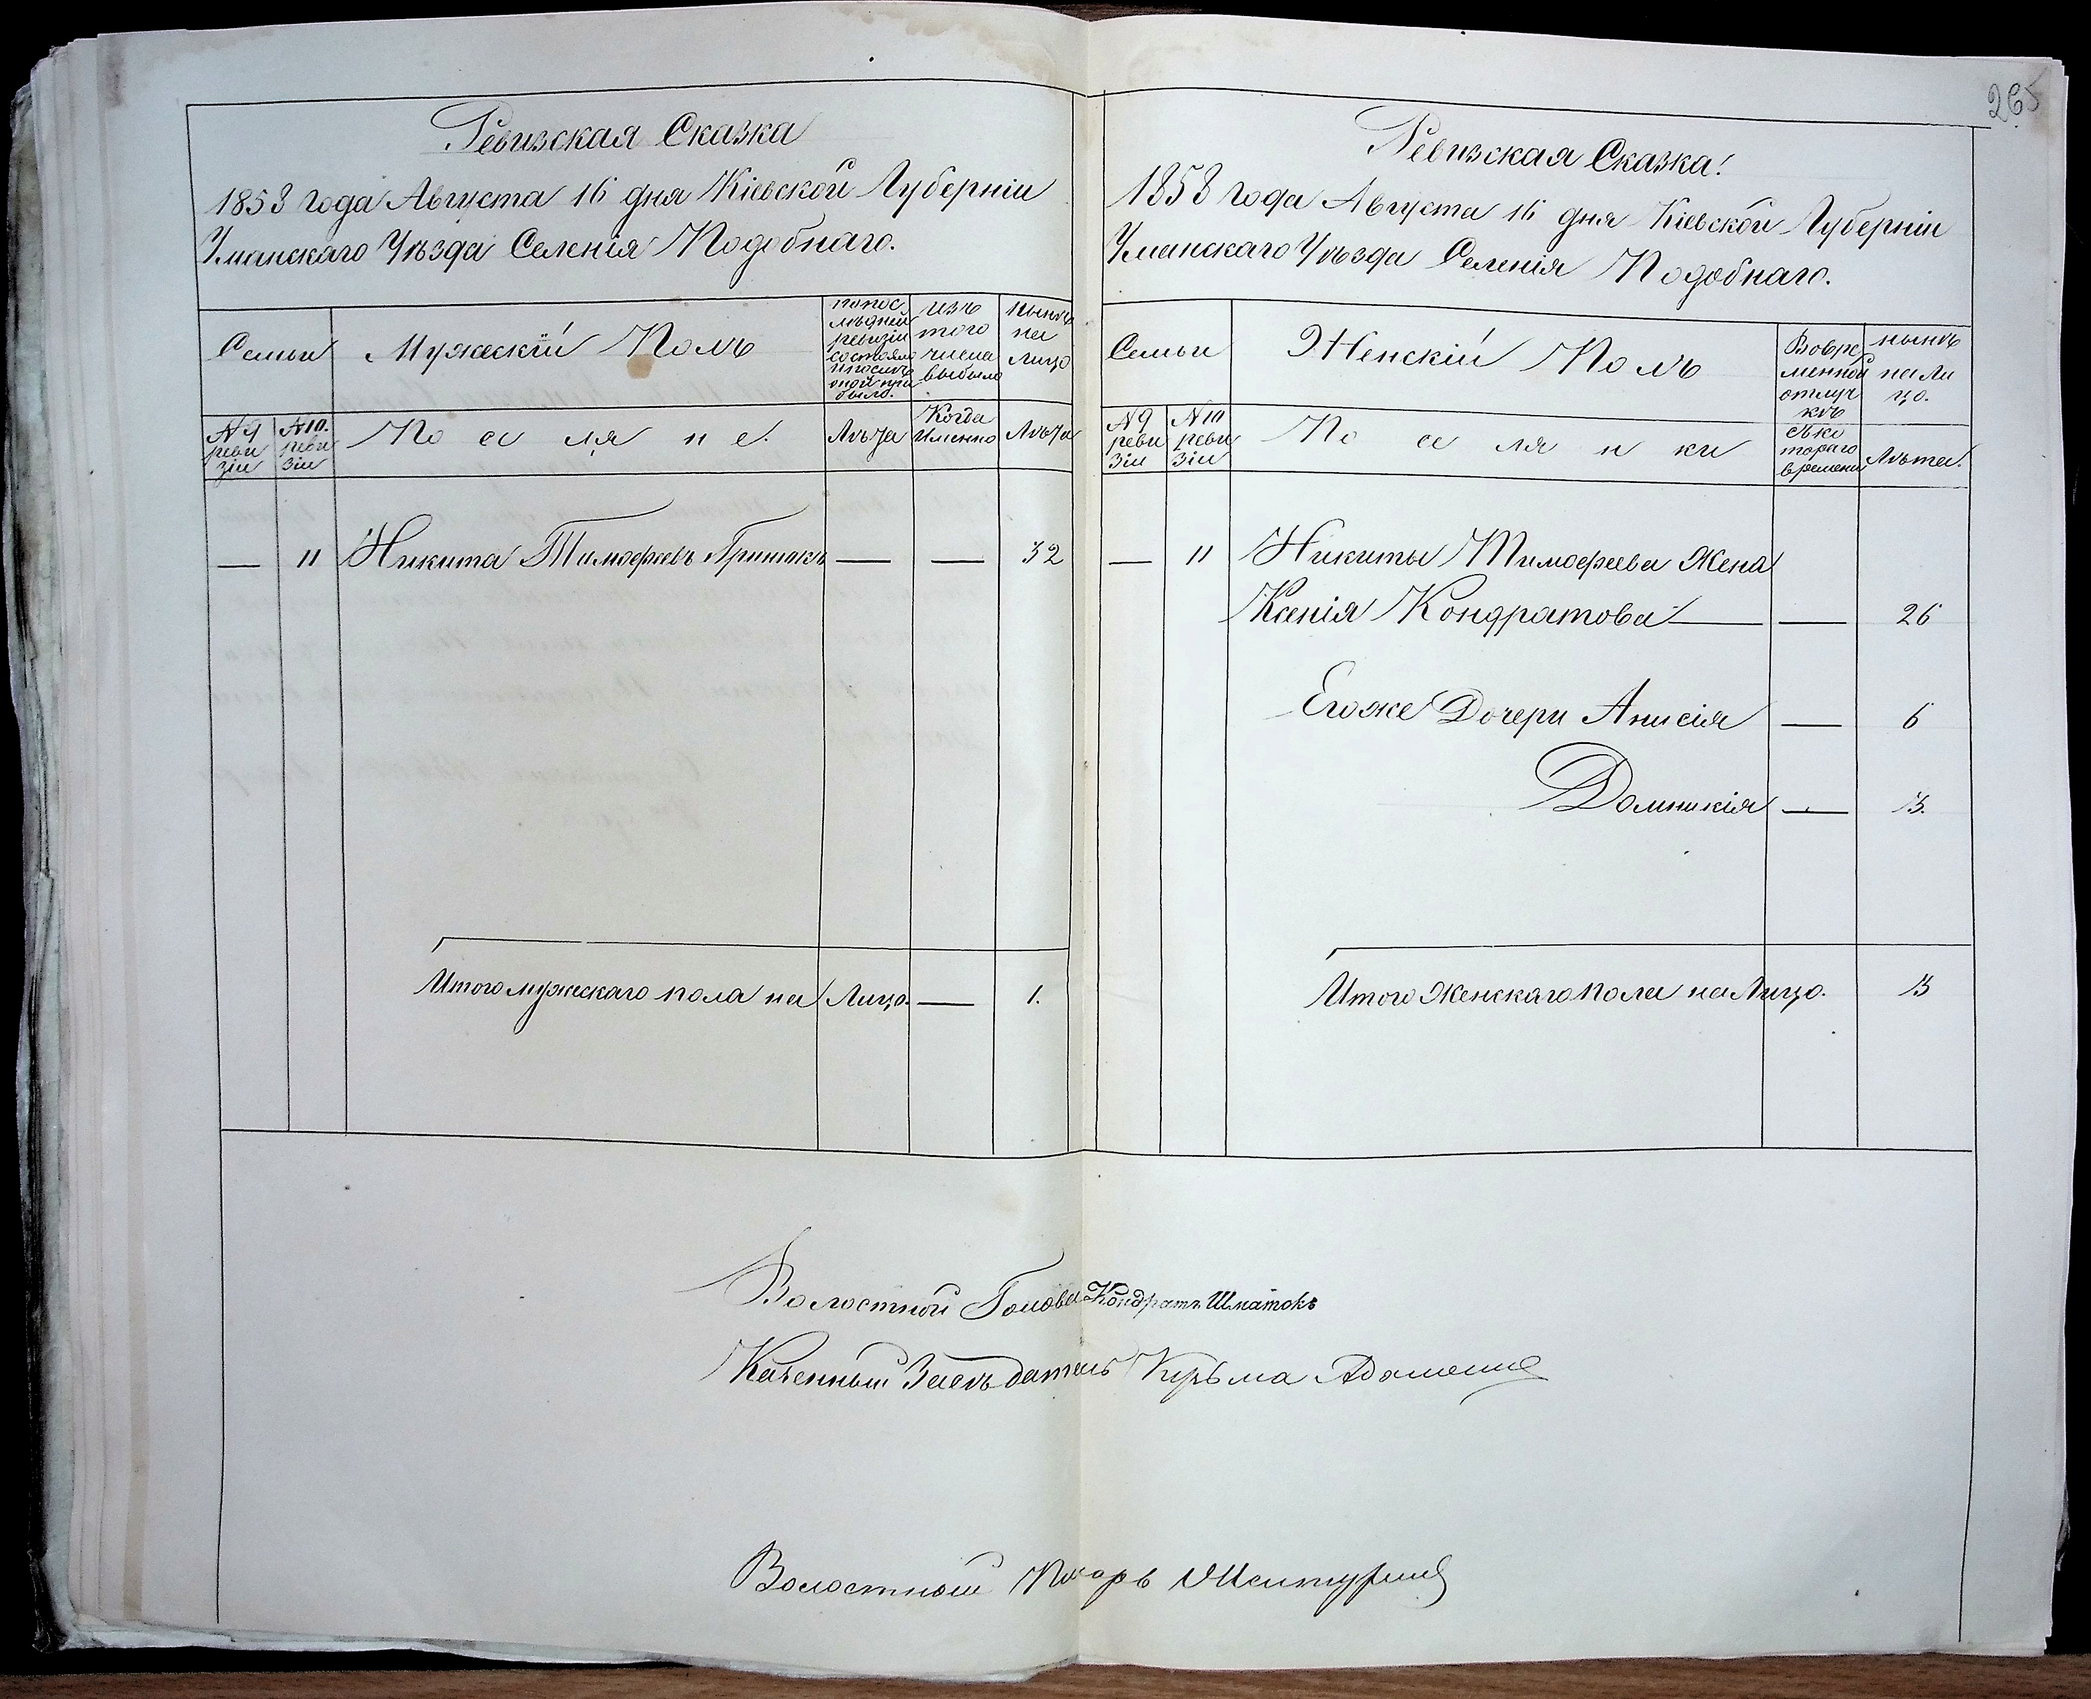 265
Ревизская Сказка
1858 года Августа 16 дня Кіевской Губерніи
Уманскаго Уѣзда Селенія Подобнаго.
Семьи
Мужескій Полъ
попос
лѣдней
ревизіи
состояло
ипослѣ
оной при
было.
изъ
того
числа
выбыло
нынѣ
на
лицо
№ 9
реви
зіи
№ 10.
реви
зіи
По се ля не.
Лѣта
Когда
Именно
Лѣта
— 11 Никита Тимофеевъ — — 32
Итого мужескаго пола на Лицо — 1.
Ревизская Сказка!
1858 года Августа 16 дня Кіевской Губерніи
Уманскаго Уѣзда Селенія Подобнаго.
Семьи
Женскій Полъ
Вовре
менной
отлуч
кѣ
нынѣ
на Ли
цо.
№ 9
реви
зіи
№ 10
реви
зіи
По се ля н ки
съ ко
тораго
времени
Лѣта.
— 11 Никиты Тимофеева Жена
Ксенія Кондратова — — 26
Егоже Дочери Анисія — 6
Домникія — 3.
Итого Женскаго пола на Лицо. 3
Волостной Голова Кондратъ Шматокъ
Казенный Засѣдатель Кузьма
Волостной Писарь